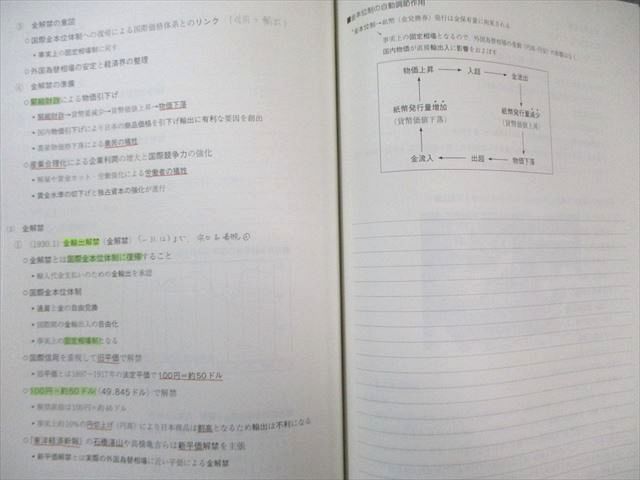 ③ 金解禁の意図
○国際金本位体制への復帰による国際価格体系とのリンク
・事実上の固定相場制に戻す
○外国為替相場の安定と経済界の整理
④ 金解禁の準備
○緊縮財政による物価引下げ
・緊縮財政→貨幣量減少→貨幣価値上昇→物価下落
・国内物価引下げにより日本の商品価格を引下げ輸出に有利な要因を創出
・農産物価格下落による農民の犠牲
○産業合理化による企業利潤の増大と国際競争力の強化
・解雇や賃金カット・労働強化による労働者の犠牲
・賃金水準の切下げと独占資本の強化が進行
③ 金解禁
① (1930.1) 金輸出解禁(金解禁)
○金解禁とは国際金本位体制に復帰すること
・輸入代金支払いのための金輸出を承認
○国際金本位体制
・通貨と金の自由兌換
・国際間の金輸出入の自由化
・事実上の固定相場制となる
○国際信用を重視して旧平価で解禁
・旧平価とは1897〜1917年の法定平価で100円=約50ドル
○100円=約50ドル(49.845ドル)で解禁
・解禁直前は100円=約46ドル
・事実上約10%の円切上げ(円高)により日本商品は割高となるため輸出は不利になる
○『東洋経済新報』の石橋湛山や高橋亀吉らは新平価解禁を主張
・新平価解禁とは実際の外国為替相場に近い平価による金解禁
■金本位制の自動調節作用
金本位制→紙幣(金兌換券)発行は金保有量に拘束される
事実上の固定相場となるので、外国為替相場の変動(円高・円安)の影響はなく
国内物価が直接輸出入に影響をおよぼす
物価上昇 → 入超 → 金流出
紙幣発行量増加
(貨幣価値下落)
紙幣発行量減少
(貨幣価値上昇)
金流入 ← 出超 ← 物価下落